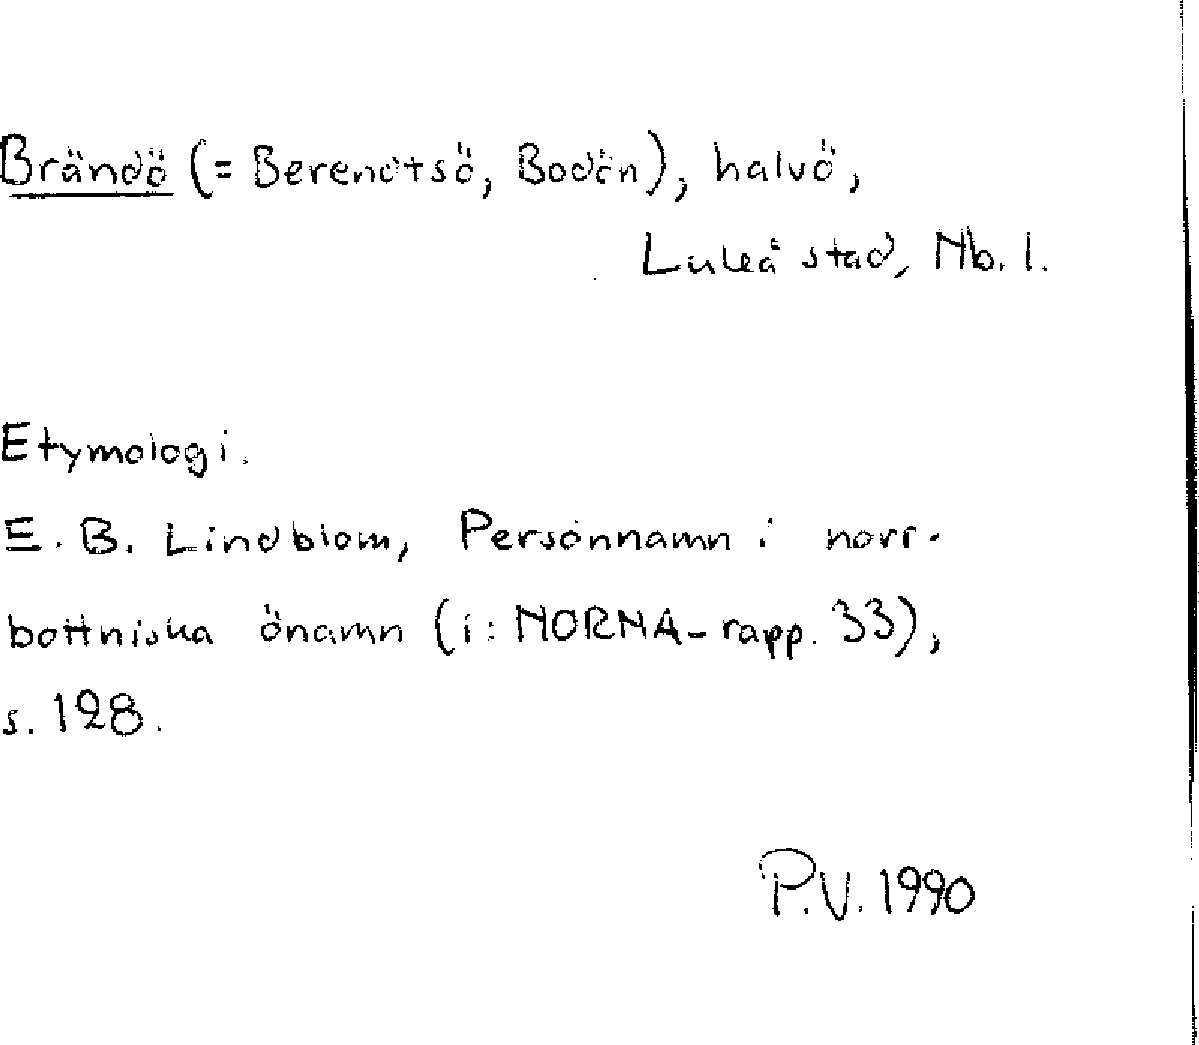 Brändö (= Berendtsö, Bodön), halvö,
Luleå stad, Nb. l.
Etymologi.
E. B. Lindblom, Personnamn i norr-
bottniska önamn (i: NORNA-rapp. 33),
s. 128.
P.V. 1990